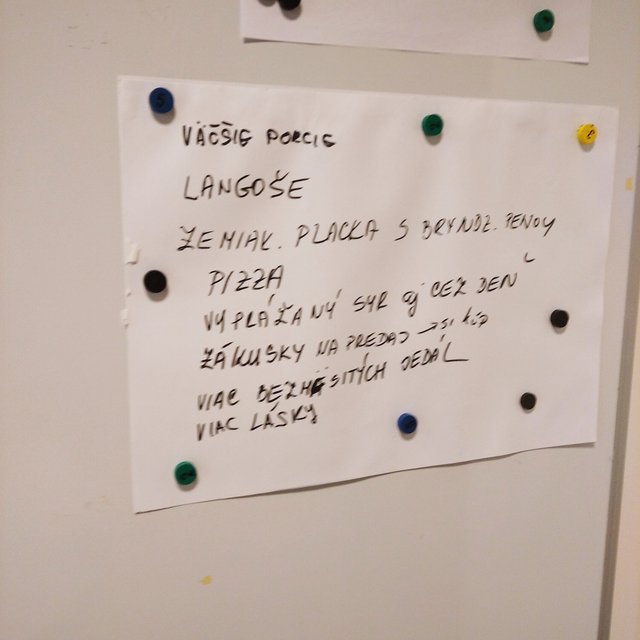 VÄČŠIE PORCIE
LANGOŠE
ZEMIAK. PLACKA S BRYNDZ. PENOU
PIZZA
VYPRÁŽANÝ SYR aj CEZ DEŇ
ZÁKUSKY NA PREDAJ → si kúp
VIAC BEZMÄSITÝCH JEDÁL
VIAC LÁSKY